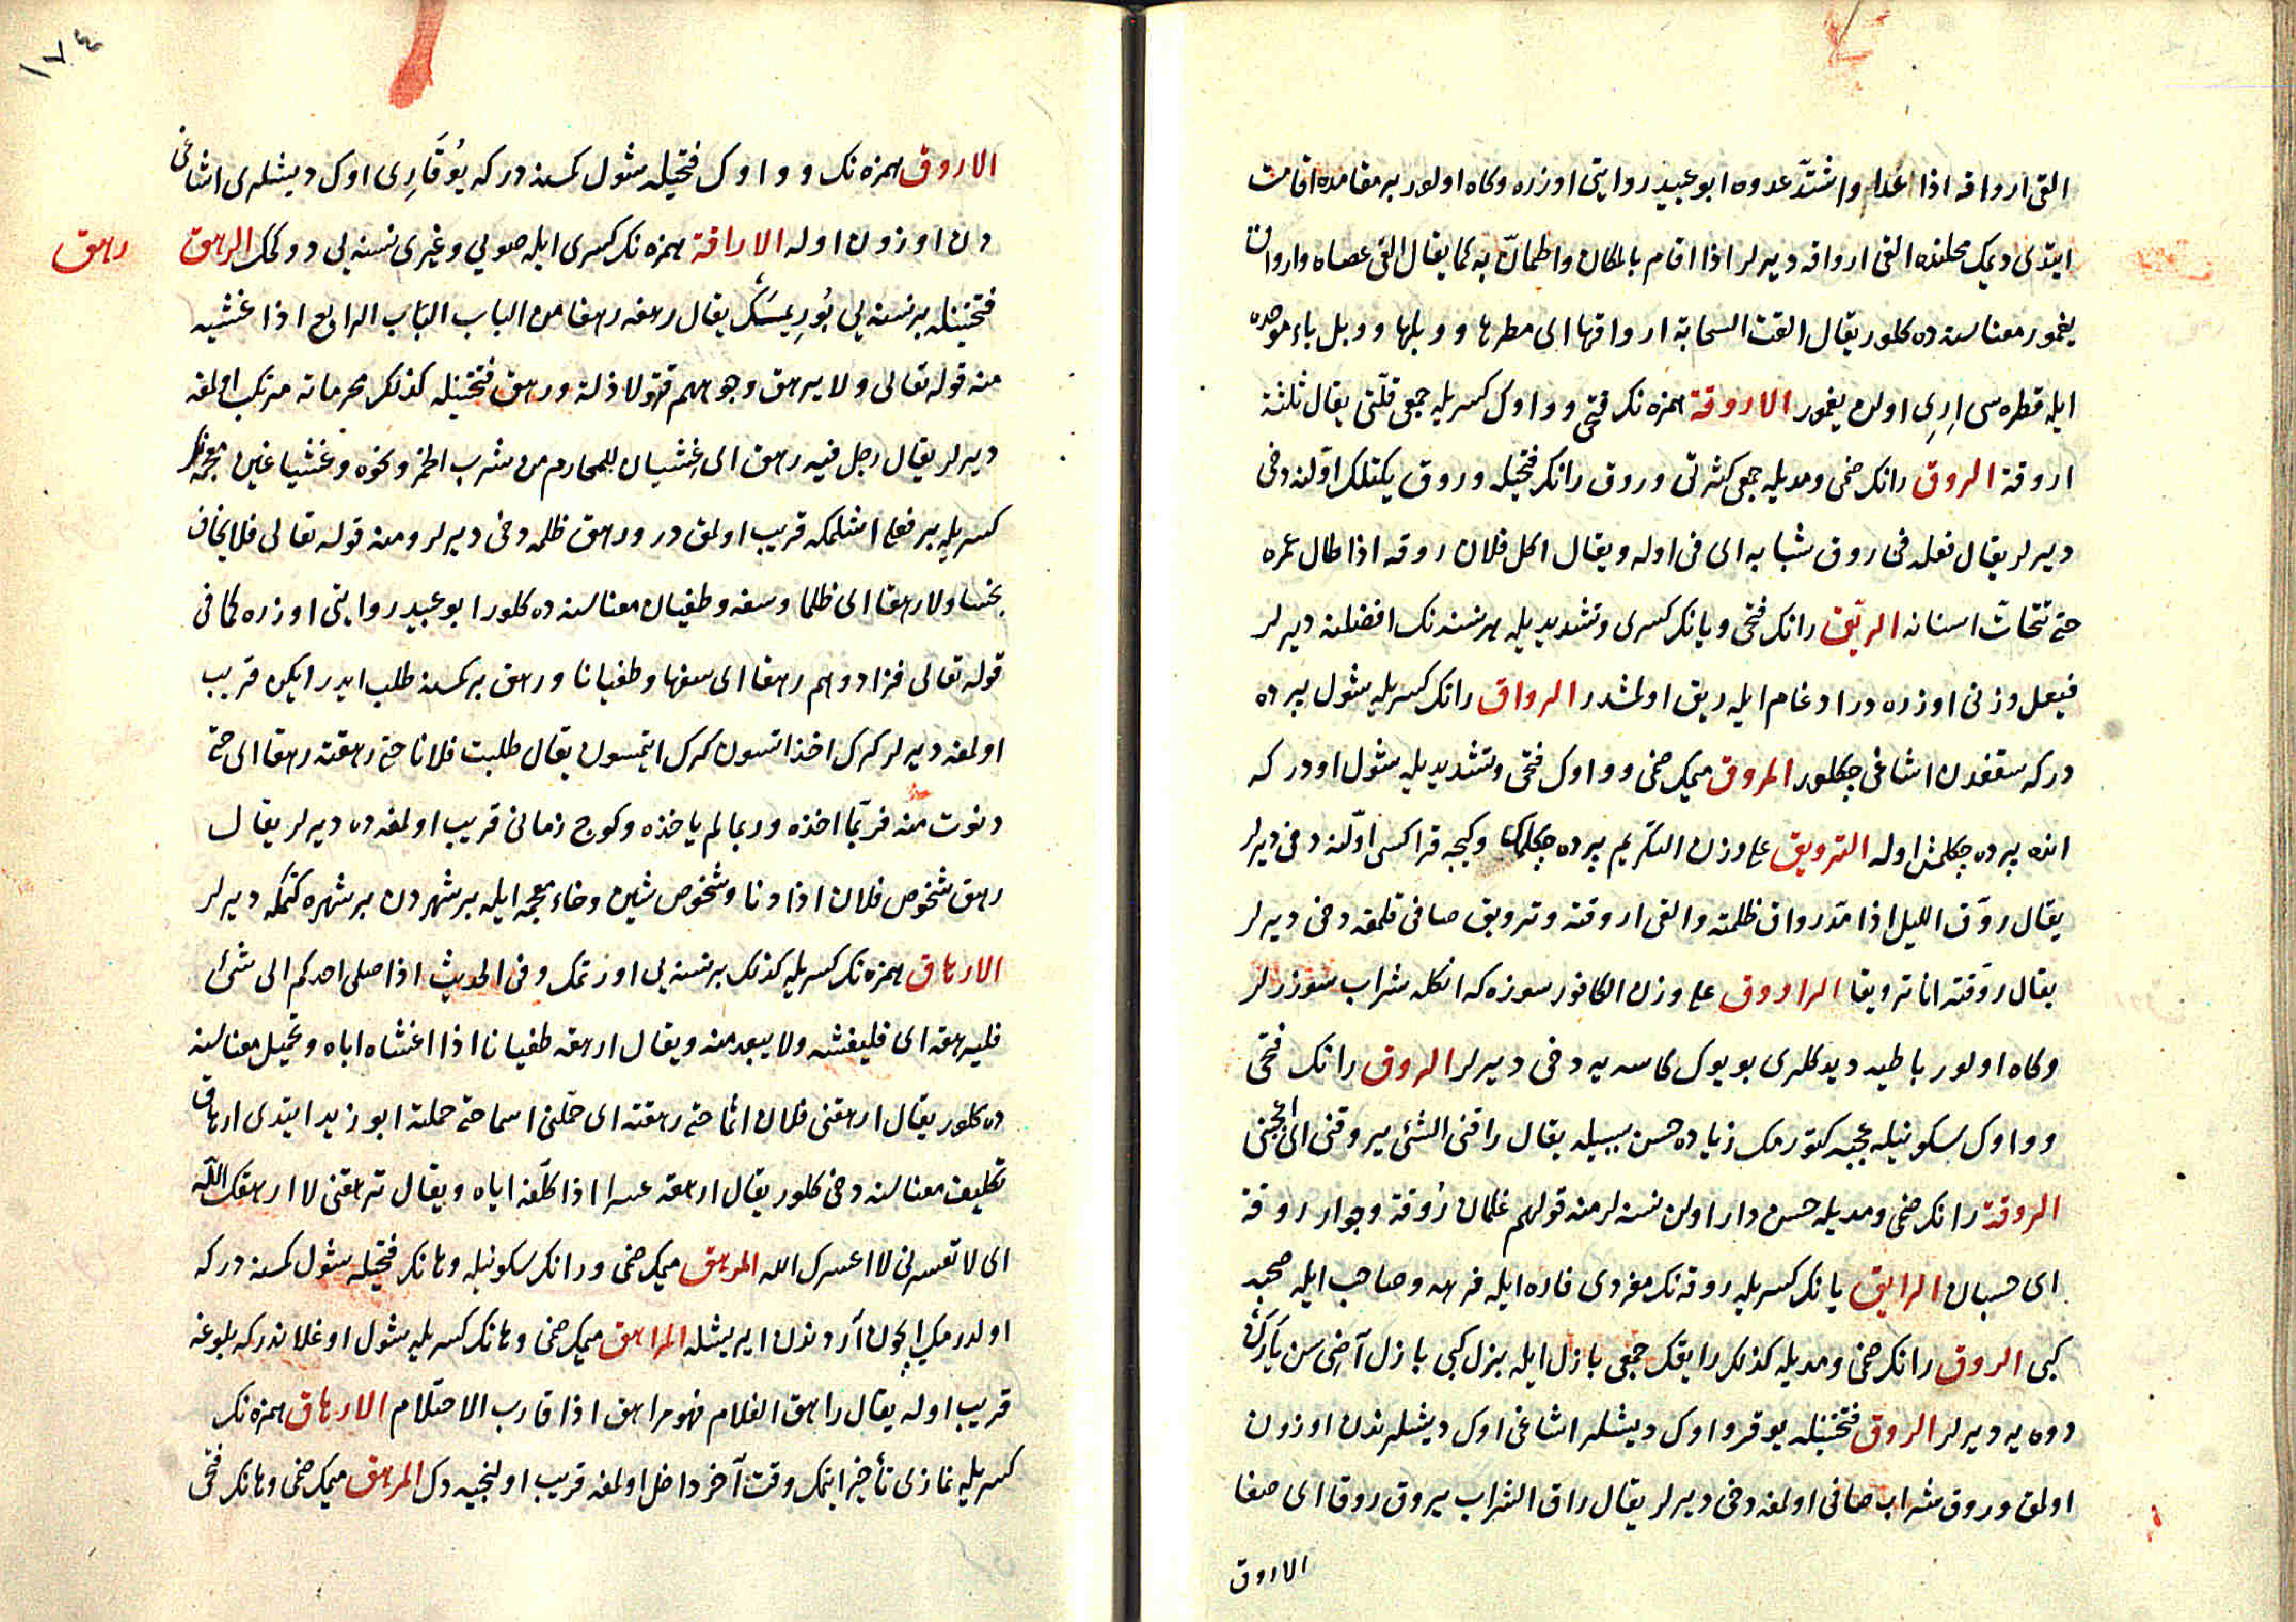 القى ارواقه اذا اعدا واشتدّ عدوه ابو عبيد روايتى اوزره وكاه اولور بر مقامده اقامت
ايتدى ديمك محلنده القى ارواقه ديرلر اذا اقام بالمكان واطمأنّ به كما يقال القى عصاه وارواق
يغمور معناسنه ده كلور يقال القت السحابة ارواقها اى مطرها ووبلها ووبل باء موحده
ايله قطره سى اِرِى اولان يغمور الاروقة همزه نك فتحى وواوك كسريله جمعى قلّتى يقال ثلثة
اروقة الروق رانك ضمى ومديله جمعى كثرتى وروق رانك فتحيله وروق يكتلك اوّلنه دخى
ديرلر يقال فعله فى روق شبابه اى فى اوله ويقال اكل فلان روقه اذا طال عمره
حتى تتحاتّ اسنانه الريّق رانك فتحى ويانك كسرى وتشديديله هر نسنه نك افضلنه ديرلر
فيعل وزنى اوزره در ادغام ايله ريق اولمشدر الرواق رانك كسريله شول پرده
دركه سقفدن اشاغى چكلور المروق ميمك ضمى وواوك فتحى وتشديديله شول اودر كه
انده پرده چكلمش اوله الترويق على وزن التكريم پرده چكلمك وكيجه قراكسى اوّلنه دخى ديرلر
يقال روّق الليل اذا مدّ رواق ظلمته والقى اروقته وترويق صافى قلمغه دخى ديرلر
يقال روّقته انا ترويقا الراووق على وزن الكافور سوزه كه انكله شراب سوزرلر
وكاه اولور باطيه ديدكلرى بويوك كاسه يه دخى ديرلر الروق رانك فتحى
وواوك سكونيله عجبه كتورمك زياده حسن سببيله يقال راقنى الشئ يروقنى اى اعجبنى
الروقة رانك ضمى ومديله حسن دار اولن نسنه لر منه قولهم غلمان رُوقة وجوار روقة
اى حسان الرايق يانك كسريله روقه نك مفردى فاره ايله فرهه وصاحب ايله صحبه
كبى الروق رانك ضمى ومديله كذلك رايقك جمعى بازل ايله بزل كبى بازل آضى سن يارن
دوه يه ديرلر الروق فتحتينله يوقرو اوك ديشلر اشاغى اوك ديشلرندن اوزون
اولمق وروق شراب صافى اولمغه دخى ديرلر يقال راق الشراب يروق روقا اى صفا
الاروق
١٧٤
الاروق همزه نك وواوك فتحيله شول كمسنه دركه يُوقَارِى اوك ديشلرى اشاغى
دن اوزون اوله الاراقة همزه نك كسرى ايله صويى وغيرى نسنه يى دوكمك الرهق
رهق
فتحتينله بر نسنه يى بُورِيمَك يقال رهقه رهقا من الباب الباب الرابع اذا غشيه
منه قوله تعالى ولا يرهق وجوههم قتر ولا ذلة ورهق فتحتينله كذلك محرماته مرتكب اولمغه
ديرلر يقال رجل فيه رهق اى غشيان للمحارم من شرب الخمر ونحوه وغشيا غين معجمه نك
كسريله بر فعل اشلمكه قريب اولمق در ورهق ظلمه دخى ديرلر ومنه قوله تعالى فلا يخاف
بخسا ولا رهقا اى ظلما وسفه وطغيان معناسنه ده كلور ابو عبيد روايتى اوزره كما فى
قوله تعالى فزادوهم رهقا اى سفها وطغيانا ورهق بر كمسنه طلب ايدرايكن قريب
اولمغه ديرلر كرك اخذ اتسون كرك ايتمسون يقال طلبت فلانا حتى رهقته رهقا اى حتى
دنوت منه فربّما اخذه وربما لم ياخذه وكوج زمانى قريب اولمغه ده ديرلر يقال
رهق شخوص فلان اذا دنا وشخوص شين وخاء معجمه ايله بر شهردن بر شهره كتمكه ديرلر
الارهاق همزه نك كسريله كذلك بر نسنه يى اورتمك وفى الحديث اذا صلى احدكم الى شئ
فليرهقه اى فليغشه ولا يبعد منه ويقال ارهقه طغيانا اذا اغشاه اياه وتحميل معناسنه
ده كلور يقال ارهقنى فلان اثما حتى رهقته اى حمّلنى اثما حتى حملته ابو زيد ايتدى ارهاق
تكليف معناسنه دخى كلور يقال ارهقه عسرا اذا كلّفه اياه ويقال ترهقنى لا ارهقك اللّه
اى لا تعسرنى لا اعسرك الله المرهق ميمك ضمى ورانك سكونيله وهانك فتحيله شول كمسنه دركه
اولدرمك ايچون آردندن ايريشله المراهق ميمك ضمى وهانك كسريله شول اوغلاندركه بلوغه
قريب اوله يقال راهق الغلام فهو مراهق اذا قارب الاحتلام الارهاق همزه نك
كسريله نمازى تأخير ايتمك وقت آخر داخل اولمغه قريب اولنجيه دك المرهق ميمك ضمى وهانك فتحى